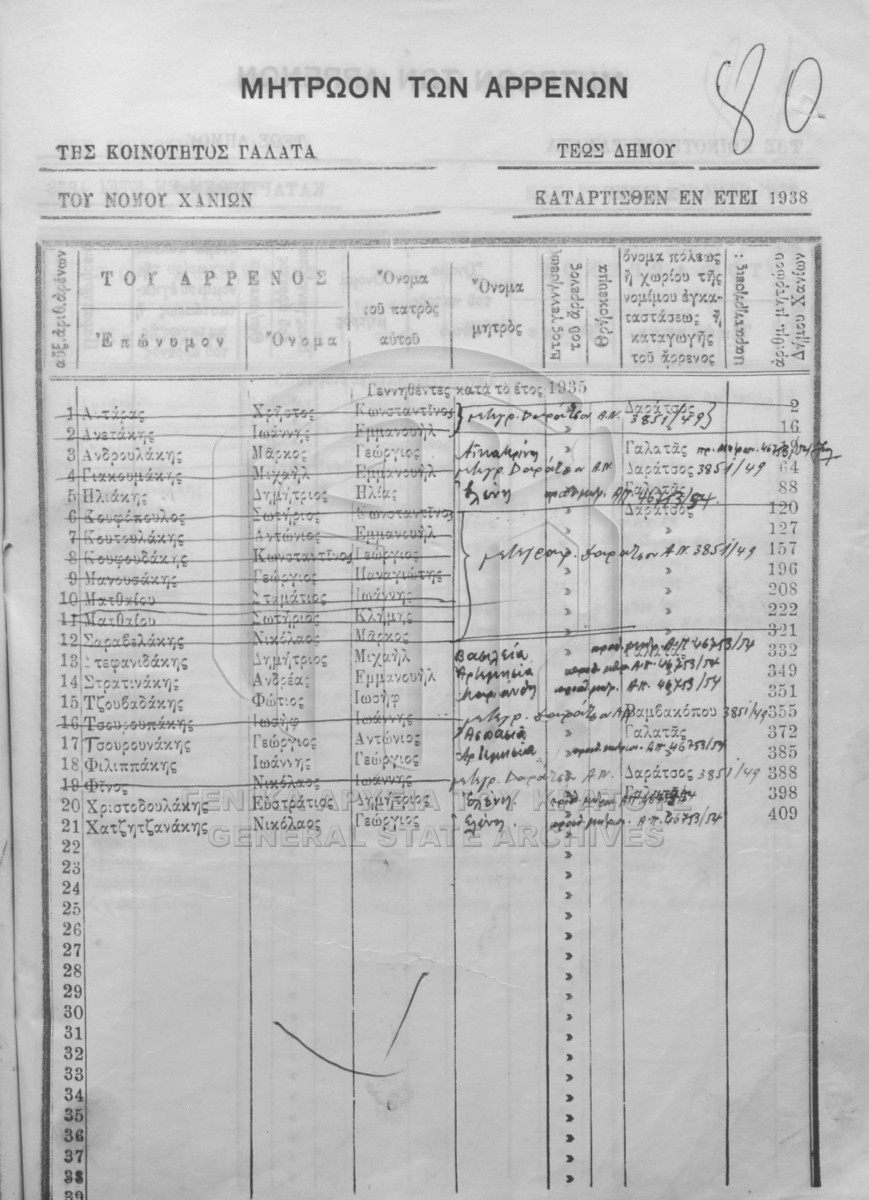 80
ΜΗΤΡΩΟΝ ΤΩΝ ΑΡΡΕΝΩΝ
ΤΗΣ ΚΟΙΝΟΤΗΤΟΣ ΓΑΛΑΤΑ ΤΕΩΣ ΔΗΜΟΥ
ΤΟΥ ΝΟΜΟΥ ΧΑΝΙΩΝ ΚΑΤΑΡΤΙΣΘΕΝ ΕΝ ΕΤΕΙ 1938
αὔξ. ἀριθ. ἀρρένων
ΤΟΥ ΑΡΡΕΝΟΣ
Ἐπώνυμον
Ὄνομα
Ὄνομα
τοῦ πατρὸς
αὐτοῦ
Ὄνομα
μητρὸς
Ἔτος γεννήσεως
τοῦ ἄρρενος
Θρήσκευμα
ὄνομα πόλεως
ἢ χωρίου τῆς
νομίμου ἐγκα-
ταστάσεως ἢ
καταγωγῆς
τοῦ ἄρρενος
ἀριθμ. μητρώου
Δήμου Χανίων
Γεννηθέντες κατὰ τὸ ἔτος 1935
1 Ἀντάρας Χρῆστος Κωνσταντῖνος μετεγρ. Δαράτσον Α.Π. 3851/49 Δαράτσος 2
2 Ἀνετάκης Ἰωάννης Ἐμμανουὴλ » » 16
3 Ἀνδρουλάκης Μᾶρκος Γεώργιος Αἰκατερίνη » Γαλατᾶς 46753/54
4 Γιακουμάκης Μιχαὴλ Ἐμμανουὴλ μετεγρ. Δαράτσον Α.Π. Δαράτσος 3851/49 64
5 Ἡλιάκης Δημήτριος Ἡλίας Ἑλένη Γαλατᾶς Α.Π. 46753/54 88
6 Κουφόπουλος Σωτήριος Κωνσταντῖνος » Δαράτσος 120
7 Κουτουλάκης Ἀντώνιος Ἐμμανουὴλ » » 127
8 Κουφουδάκης Κωνσταντῖνος Γεώργιος μετεγραφ. Δαράτσον Α.Π. 3851/49 157
9 Μανουσάκης Γεώργιος Παναγιώτης » » 196
10 Ματθαίου Σταμάτιος Ἰωάννης » » 208
11 Ματθαίου Σωτήριος Κλήμης » » 222
12 Σαραβελάκης Νικόλαος Μᾶρκος » » 321
13 Στεφανιδάκης Δημήτριος Μιχαὴλ Βασιλεία Γαλατᾶς Α.Π. 46753/54 332
14 Στρατινάκης Ἀνδρέας Ἐμμανουὴλ Ἀρτεμισία Α.Π. 46753/54 349
15 Τζουβαδάκης Φώτιος Ἰωσὴφ Μαριάνθη Α.Π. 46753/54 351
16 Τσουρουπάκης Ἰωσὴφ Ἰωάννης μετεγρ. Δαράτσον Α.Π. Βαμβακόπου 3851/49 355
17 Τσουρουνάκης Γεώργιος Ἀντώνιος Ἀσπασία » Γαλατᾶς 372
18 Φιλιππάκης Ἰωάννης Γεώργιος Ἀρτεμισία » Α.Π. 46753/54 385
19 Φῖνος Νικόλαος Ἰωάννης μετεγρ. Δαράτσον Α.Π. Δαράτσος 3851/49 388
20 Χριστοδουλάκης Εὐστράτιος Δημήτριος Ἑλένη Γαλατᾶς Α.Π. 398
21 Χατζητζανάκης Νικόλαος Γεώργιος Ἑλένη Α.Π. 46753/54 409
ΓΕΝΙΚΑ ΑΡΧΕΙΑ ΤΟΥ ΚΡΑΤΟΥΣ
GENERAL STATE ARCHIVES
22 »
23 »
24 »
25 »
26 »
27 »
28 »
29 »
30 »
31 »
32 »
33 »
34 »
35 »
36 »
37 »
38 »
39